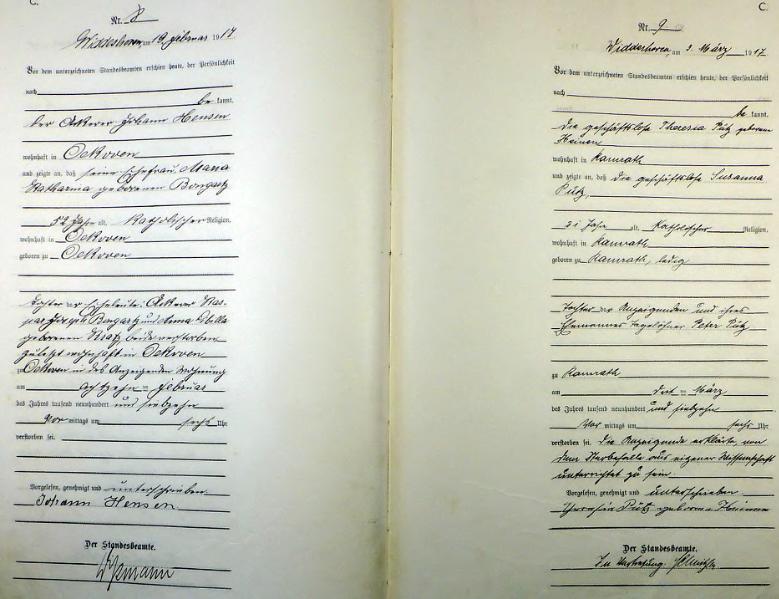 C.
Nr. 8
Widdeshoven am 19. Februar 1917
Vor dem unterzeichneten Standesbeamten erschien heute, der Persönlichkeit
nach
be kannt,
der Ackerer Johann Hensen
wohnhaft in Oekoven
und zeigte an, daß seine Ehefrau Maria
Katharina geborenen Bongartz
52 Jahre alt, Katholischer Religion,
wohnhaft in Oekoven
geboren zu Oekoven
Tochter der Eheleute: Ackerer Kas-
par Joseph Bongartz und Anna Sibilla
geborenen beide verstorben
zuletzt wohnhaft in Oekoven
zu Oekoven in des Anzeigenden Wohnung
am achtzehn ten Februar
des Jahres tausend neunhundert und siebzehn
Vor mittags um sechs Uhr
verstorben sei.
Vorgelesen, genehmigt und unterschrieben.
Johann Hensen
Der Standesbeamte.
C.
Nr. 9
Widdeshoven, am 3. März 1917
Vor dem unterzeichneten Standesbeamten erschien heute, der Persönlichkeit
nach
be kannt,
die geschäftslose Theresia Pütz geborene
Heinen
wohnhaft in Ramrath
und zeigte an, daß die geschäftslose Susanna
Pütz,
31 Jahre alt, Katholischer Religion,
wohnhaft in Ramrath
geboren zu Ramrath, ledig
Tochter der Anzeigenden und ihres
Ehemannes Tagelöhner Peter Pütz
zu Ramrath
am drit ten März
des Jahres tausend neunhundert und siebzehn
Vor mittags um sechs Uhr
verstorben sei. Die Anzeigende erklärte, von
dem Sterbefalle aus eigener Wissenschaft
unterrichtet zu sein.
Vorgelesen, genehmigt und unterschrieben
Theresia Pütz geborene Heinen
Der Standesbeamte.
In Vertretung: